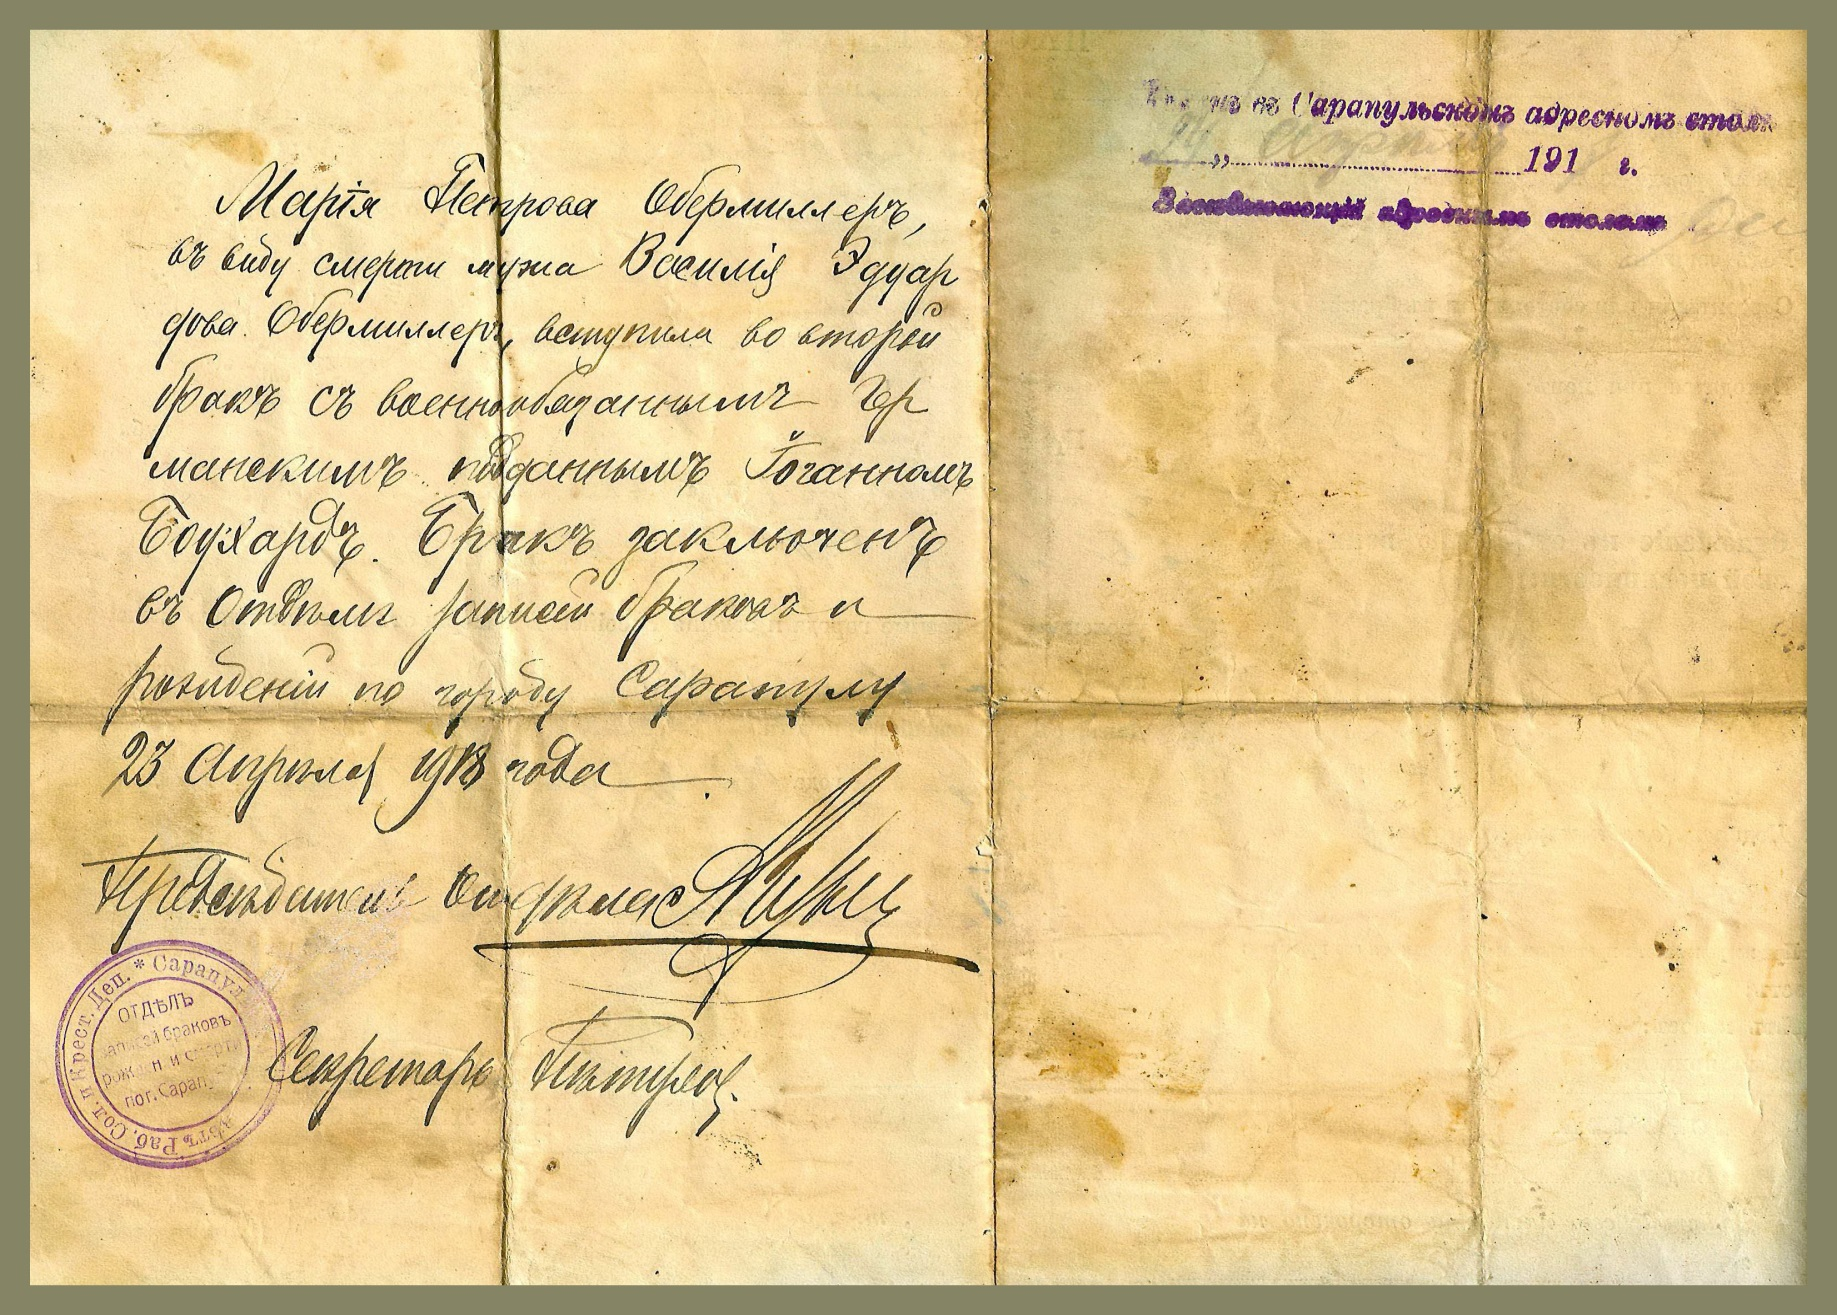 Марія Петрова Обермиллеръ,
въ виду смерти мужа Василія Эдуар
дова Обермиллеръ, вступила во второй
бракъ съ военнообязаннымъ Гер
манскимъ подданнымъ Іоганномъ
Боухардъ. Бракъ заключенъ
въ Отдѣлѣ записи браковъ и
рожденій по городу Сарапулу
23 Апрѣля 1918 года
Предсѣдатель Отдѣла
Секретарь
* Сарапул. Раб. Сол. и Крест. Деп.
ОТДѢЛЪ
записей браковъ
рожден и смерти
по г. Сарап
въ Сарапульскомъ адресномъ столѣ
24 Апрѣля 191 г.
Завѣдывающій адреснымъ столомъ